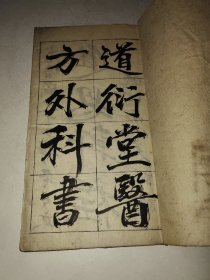 道衍堂醫
方外科書